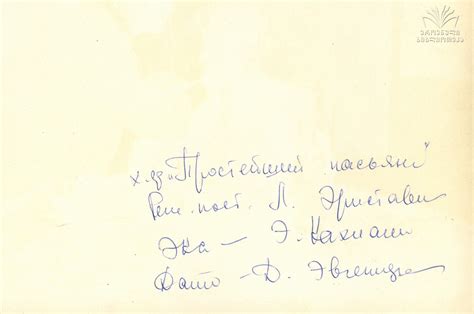 ეროვნული
ბიბლიოთეკა
х. яз „Простейший пасьянс"
Реж. пост. Л. Эристави
Эка – Э. Кахиани
Дато – Д. Эвгенидзе